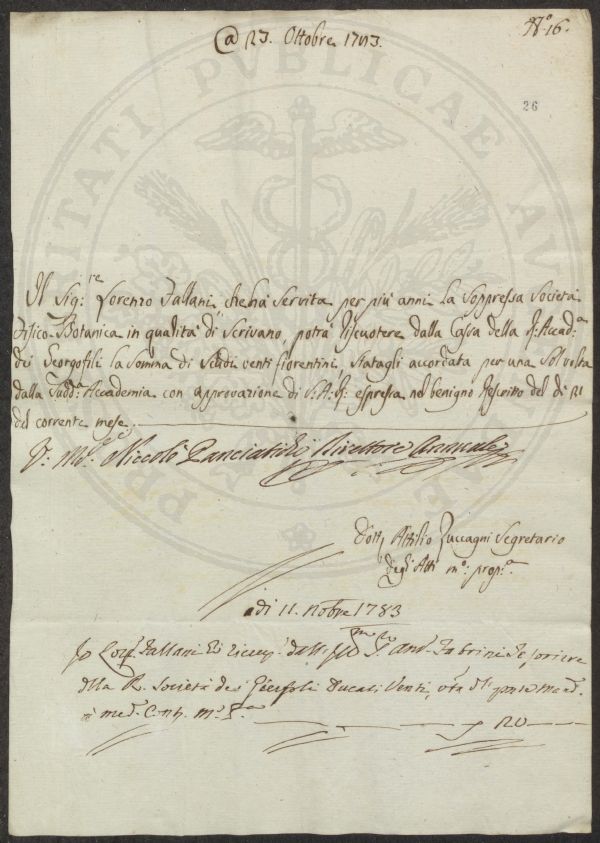 N.° 16.
@ 23. Ottobre 1783.
26
Il Sig:re Lorenzo Tallani, che ha servita per più anni la soppressa Società
Fisico-Botanica in qualità di Scrivano, potrà riscuotere dalla Cassa della R. Accad:a
dei Georgofili la somma di scudi venti fiorentini, statagli accordata per una sol volta
dalla sudd:a Accademia con approvazione di S. A. R. espressa nel benigno rescritto del dì
del corrente mese.
Niccolò Panciatichi Direttore Annuale
Dott. Attilio Zuccagni Segretario
degl' Atti m:o prop:a
adi 11. Nobre 1783
Io Tallani dall' And. Fabrini Tesoriere
della R. Società dei Ducati Venti,
PVBLICAE